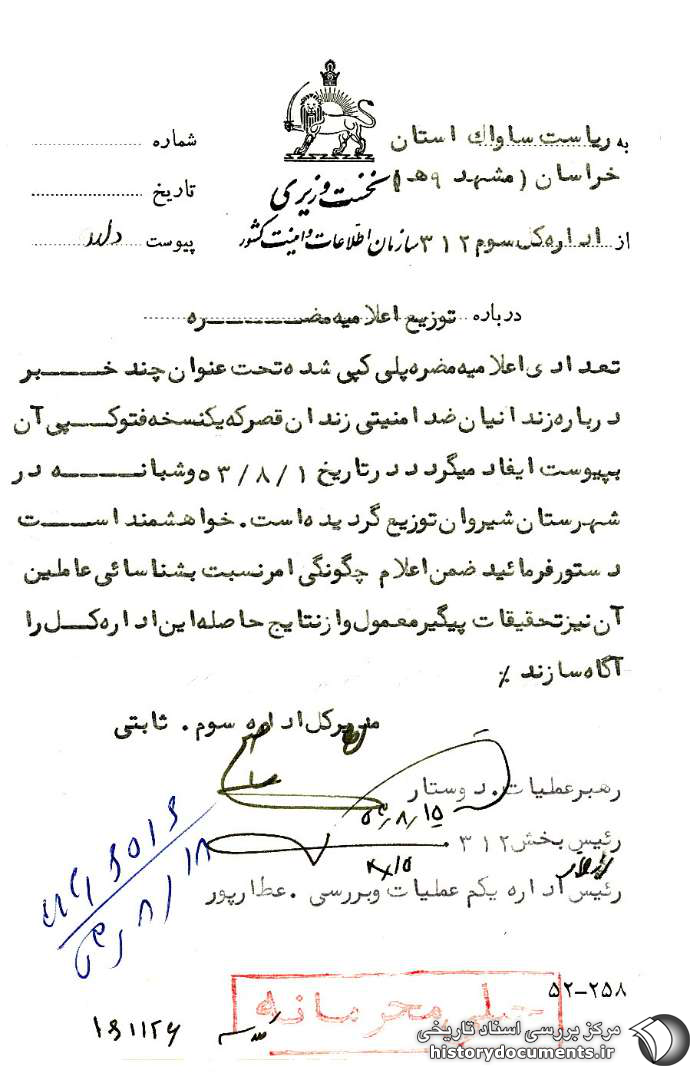 به ریاست ساواک استان
خراسان (مشهد ۹هـ)
از اداره کل سوم ۳۱۲
نخست وزیری
سازمان اطلاعات و امنیت کشور
شماره
تاریخ
پیوست دارد
درباره توزیع اعلامیه مضره
تعدادی اعلامیه مضره پلی کپی شده تحت عنوان چند خبر
درباره زندانیان ضد امنیتی زندان قصر که یکنسخه فتوکپی آن
بپیوست ایفاد میگردد در تاریخ ۵۳/۸/۱ و شبانه در
شهرستان شیروان توزیع گردیده است. خواهشمند است
دستور فرمائید ضمن اعلام چگونگی امر نسبت بشناسائی عاملین
آن نیز تحقیقات پیگیر معمول و از نتایج حاصله این اداره کل را
آگاه سازند ٪
مدیر کل اداره سوم. ثابتی
رهبر عملیات. دوستار
۵۳/۸/۱۵
رئیس بخش ۳۱۲
۸/۱۵
رئیس اداره یکم عملیات و بررسی. عطارپور
۵۳/۸/۱۸
۵۲-۲۵۸
خیلی محرمانه
مرکز بررسی اسناد تاریخی
historydocuments.ir